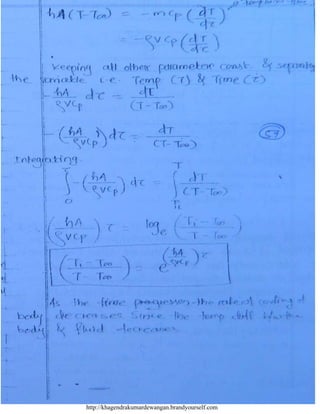 hA(T-T∞) = -mcp (dT/dτ)
= -ρVcp (dT/dτ)
keeping all other parameter const. & separating
the variable i.e. Temp (T) & Time (τ)
-hA/ρVcp dτ = dT/(T-T∞)
-(hA/ρVcp) dτ = dT/(T-T∞)
Integrating.
∫₀^τ -(hA/ρVcp) dτ = ∫_Ti^T dT/(T-T∞)
(hA/ρVcp) τ = logₑ (Ti-T∞/T-T∞)
(Ti-T∞/T-T∞) = e^(hA/ρVcp)τ
As the time progresses the rate of cooling of
body decreases since the temp diff b/w the
body & fluid decreases
http://khagendrakumardewangan.brandyourself.com